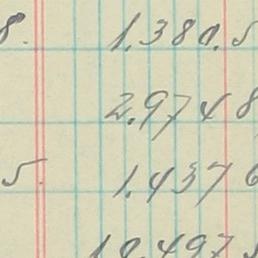 8. 1.380.5
2.974 8
5. 1.437 6
18.497